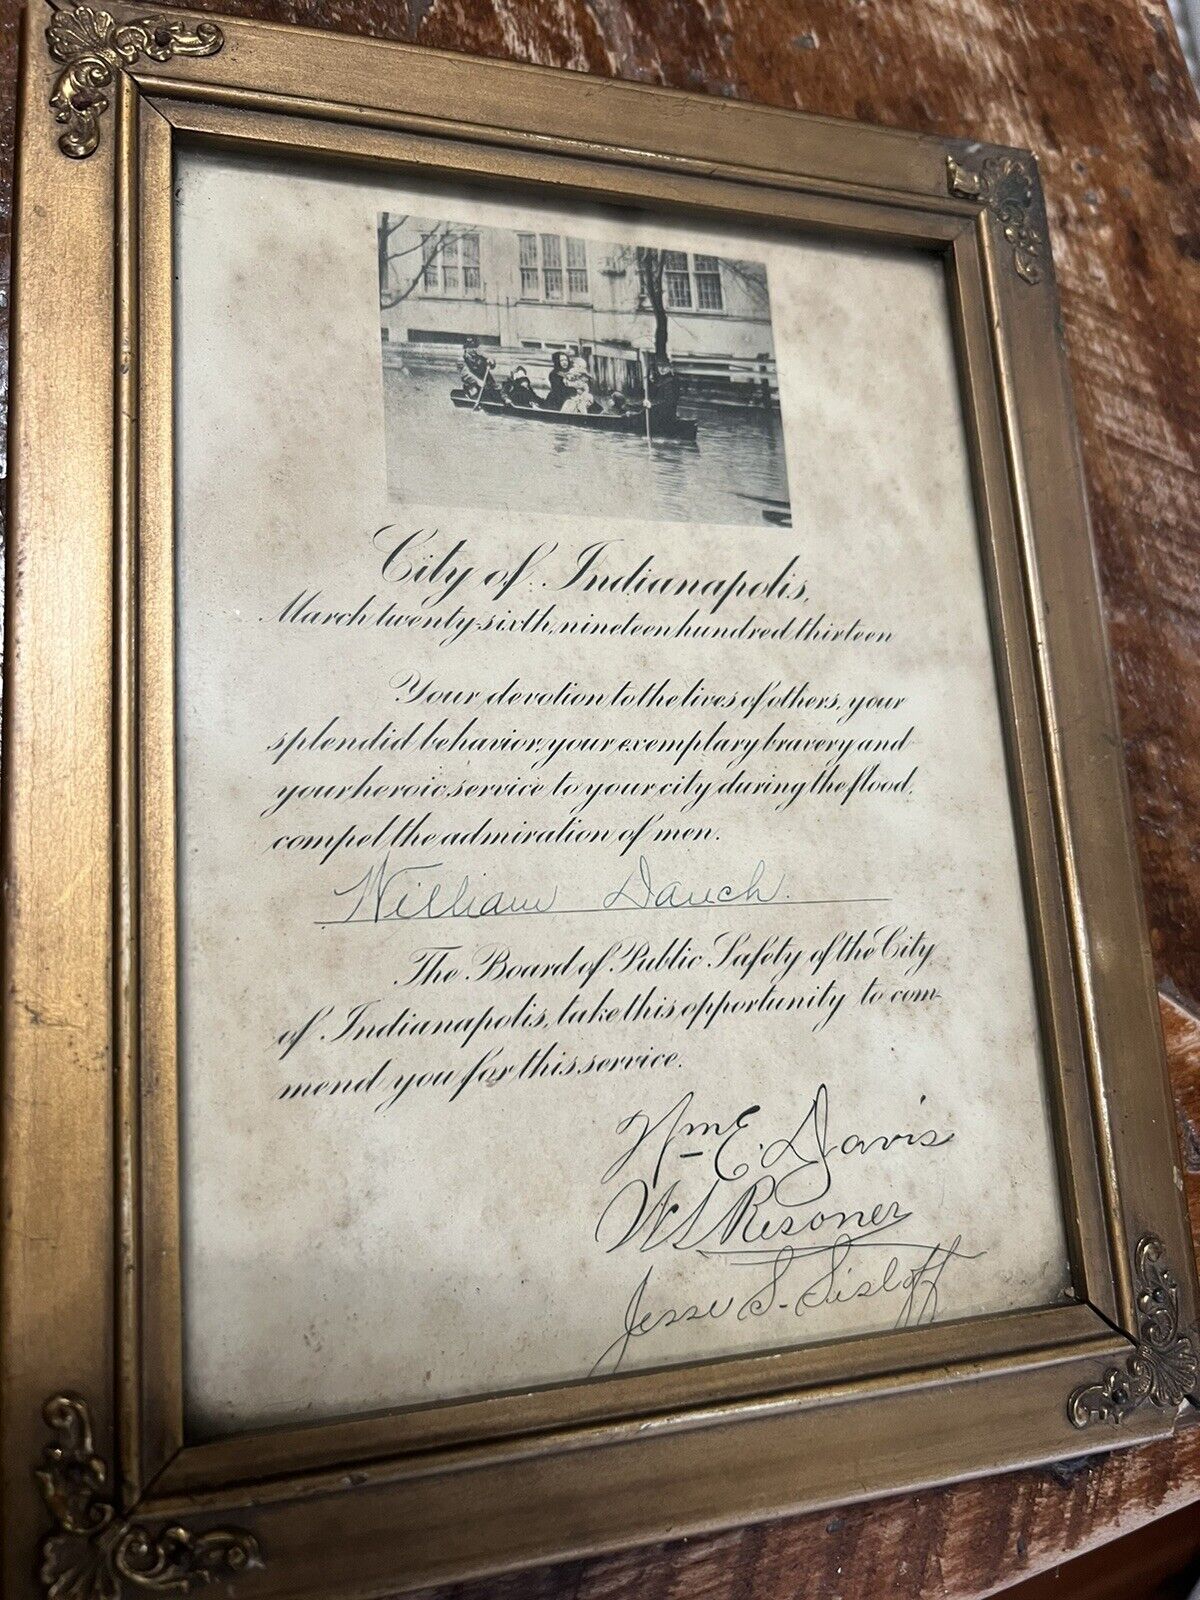 City of Indianapolis,
March twenty-sixth, nineteen hundred thirteen
Your devotion to the lives of others, your
splendid behavior, your exemplary bravery and
your heroic service to your city during the flood,
compel the admiration of men.
William Dauch.
The Board of Public Safety of the City
of Indianapolis, take this opportunity to com-
mend you for this service.
Wm E. Davis
W S Resoner
Jesse S. Sisloff